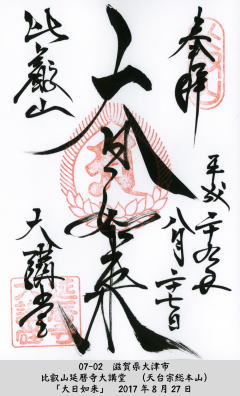 奉拝
平成二十九年
八月二十七日
大日如来
比叡山
大講堂
07-02 滋賀県大津市
比叡山延暦寺大講堂 (天台宗総本山)
「大日如来」 2017年8月27日